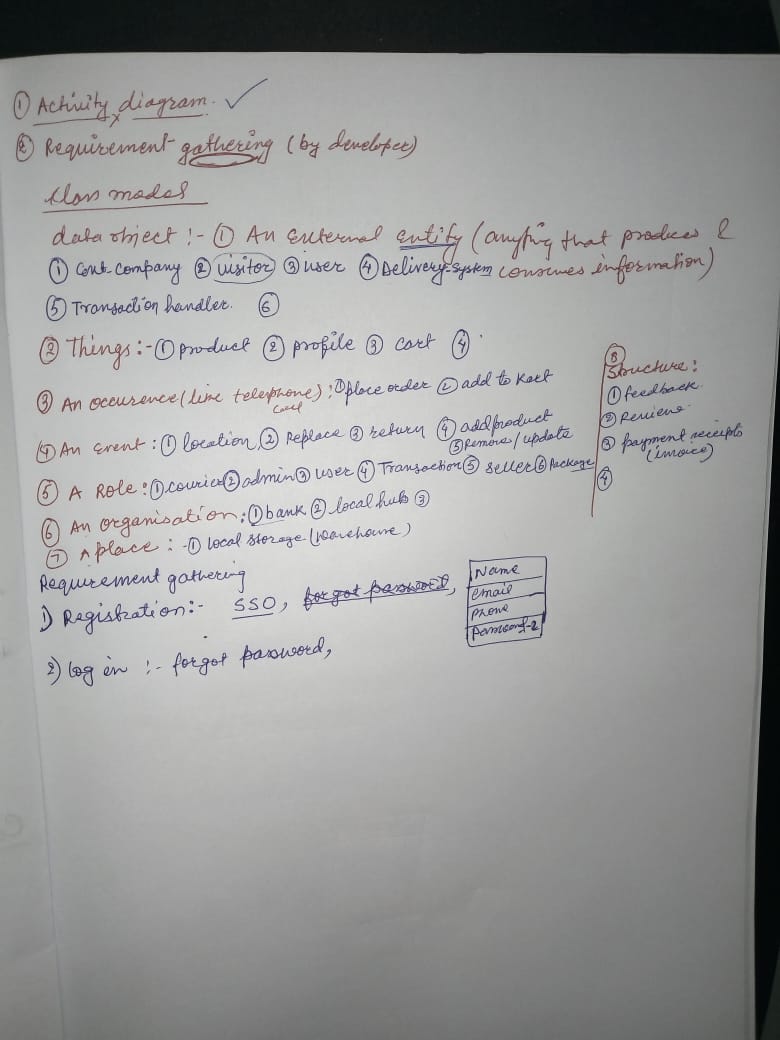 ① Activity diagram.
② Requirement gathering (by developer)
class model
data object :- ① An external entity (anything that produces &
① Cont. company ② visitor ③ user ④ Delivery system consumes information)
⑤ Transaction handler. ⑥
② Things :- ① product ② profile ③ cart ④
③ An occurence (like telephone call) : ① place order ② add to kart
④ An Event : ① location, ② Replace ③ return ④ add product
⑤ Remove / update
⑤ A Role : ① courier ② admin ③ user ④ Transaction ⑤ seller ⑥ Package
⑥ An organisation : ① bank ② local hub ③
⑦ A place : - ① local storage (warehouse)
⑧
Structure :
① feedback
② Review
③ payment receipts
(invoice)
④
Requirement gathering
1) Registration :- SSO, forgot password,
Name
email
Phone
Password-2
2) log in :- forgot password,